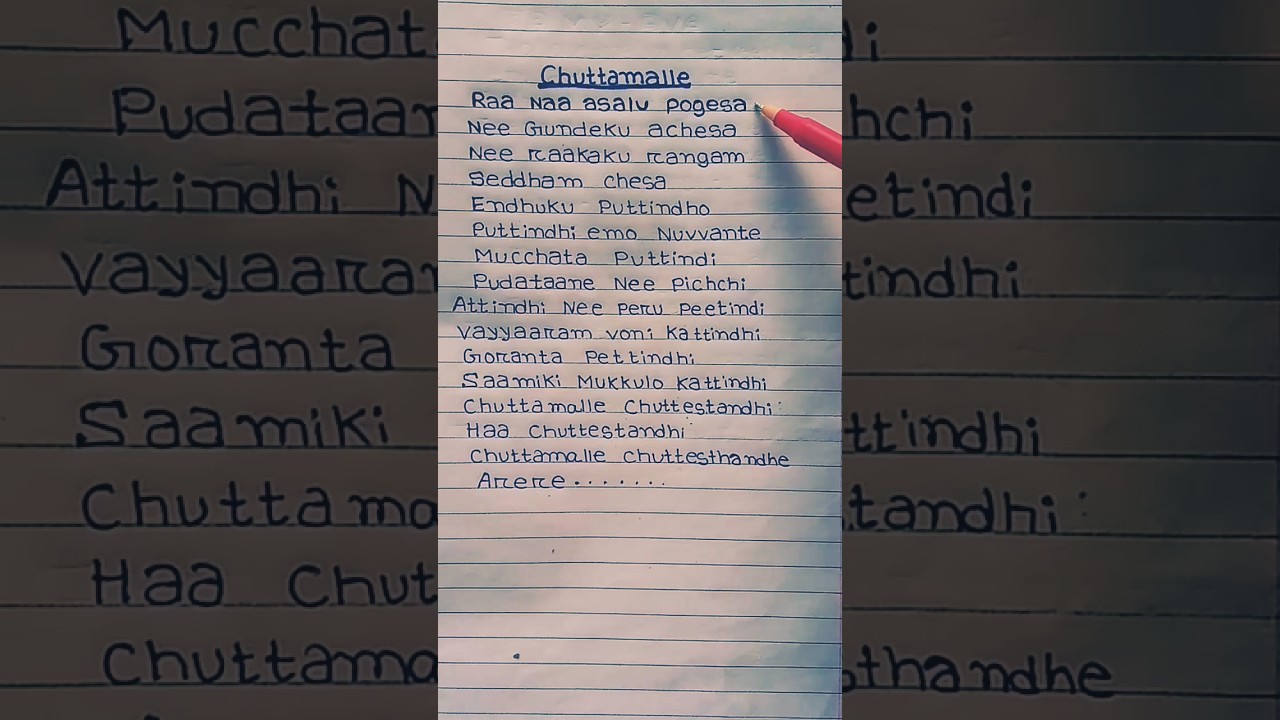 Chuttamalle
Raa Naa asalu pogesa
Nee Gundeku achesa
Nee raakaku rangam
Seddham chesa
Endhuku Puttindho
Puttindhi emo Nuvvante
Mucchata Puttindi
Pudataane Nee Pichchi
Attindhi Nee peru peetindi
Vayyaaram voni Kattindhi
Goranta Pettindhi
Saamiki Mukkulo Kattindhi
Chuttamalle Chuttestandhi
Haa Chuttestandhi
Chuttamalle chuttesthandhe
Arere.......